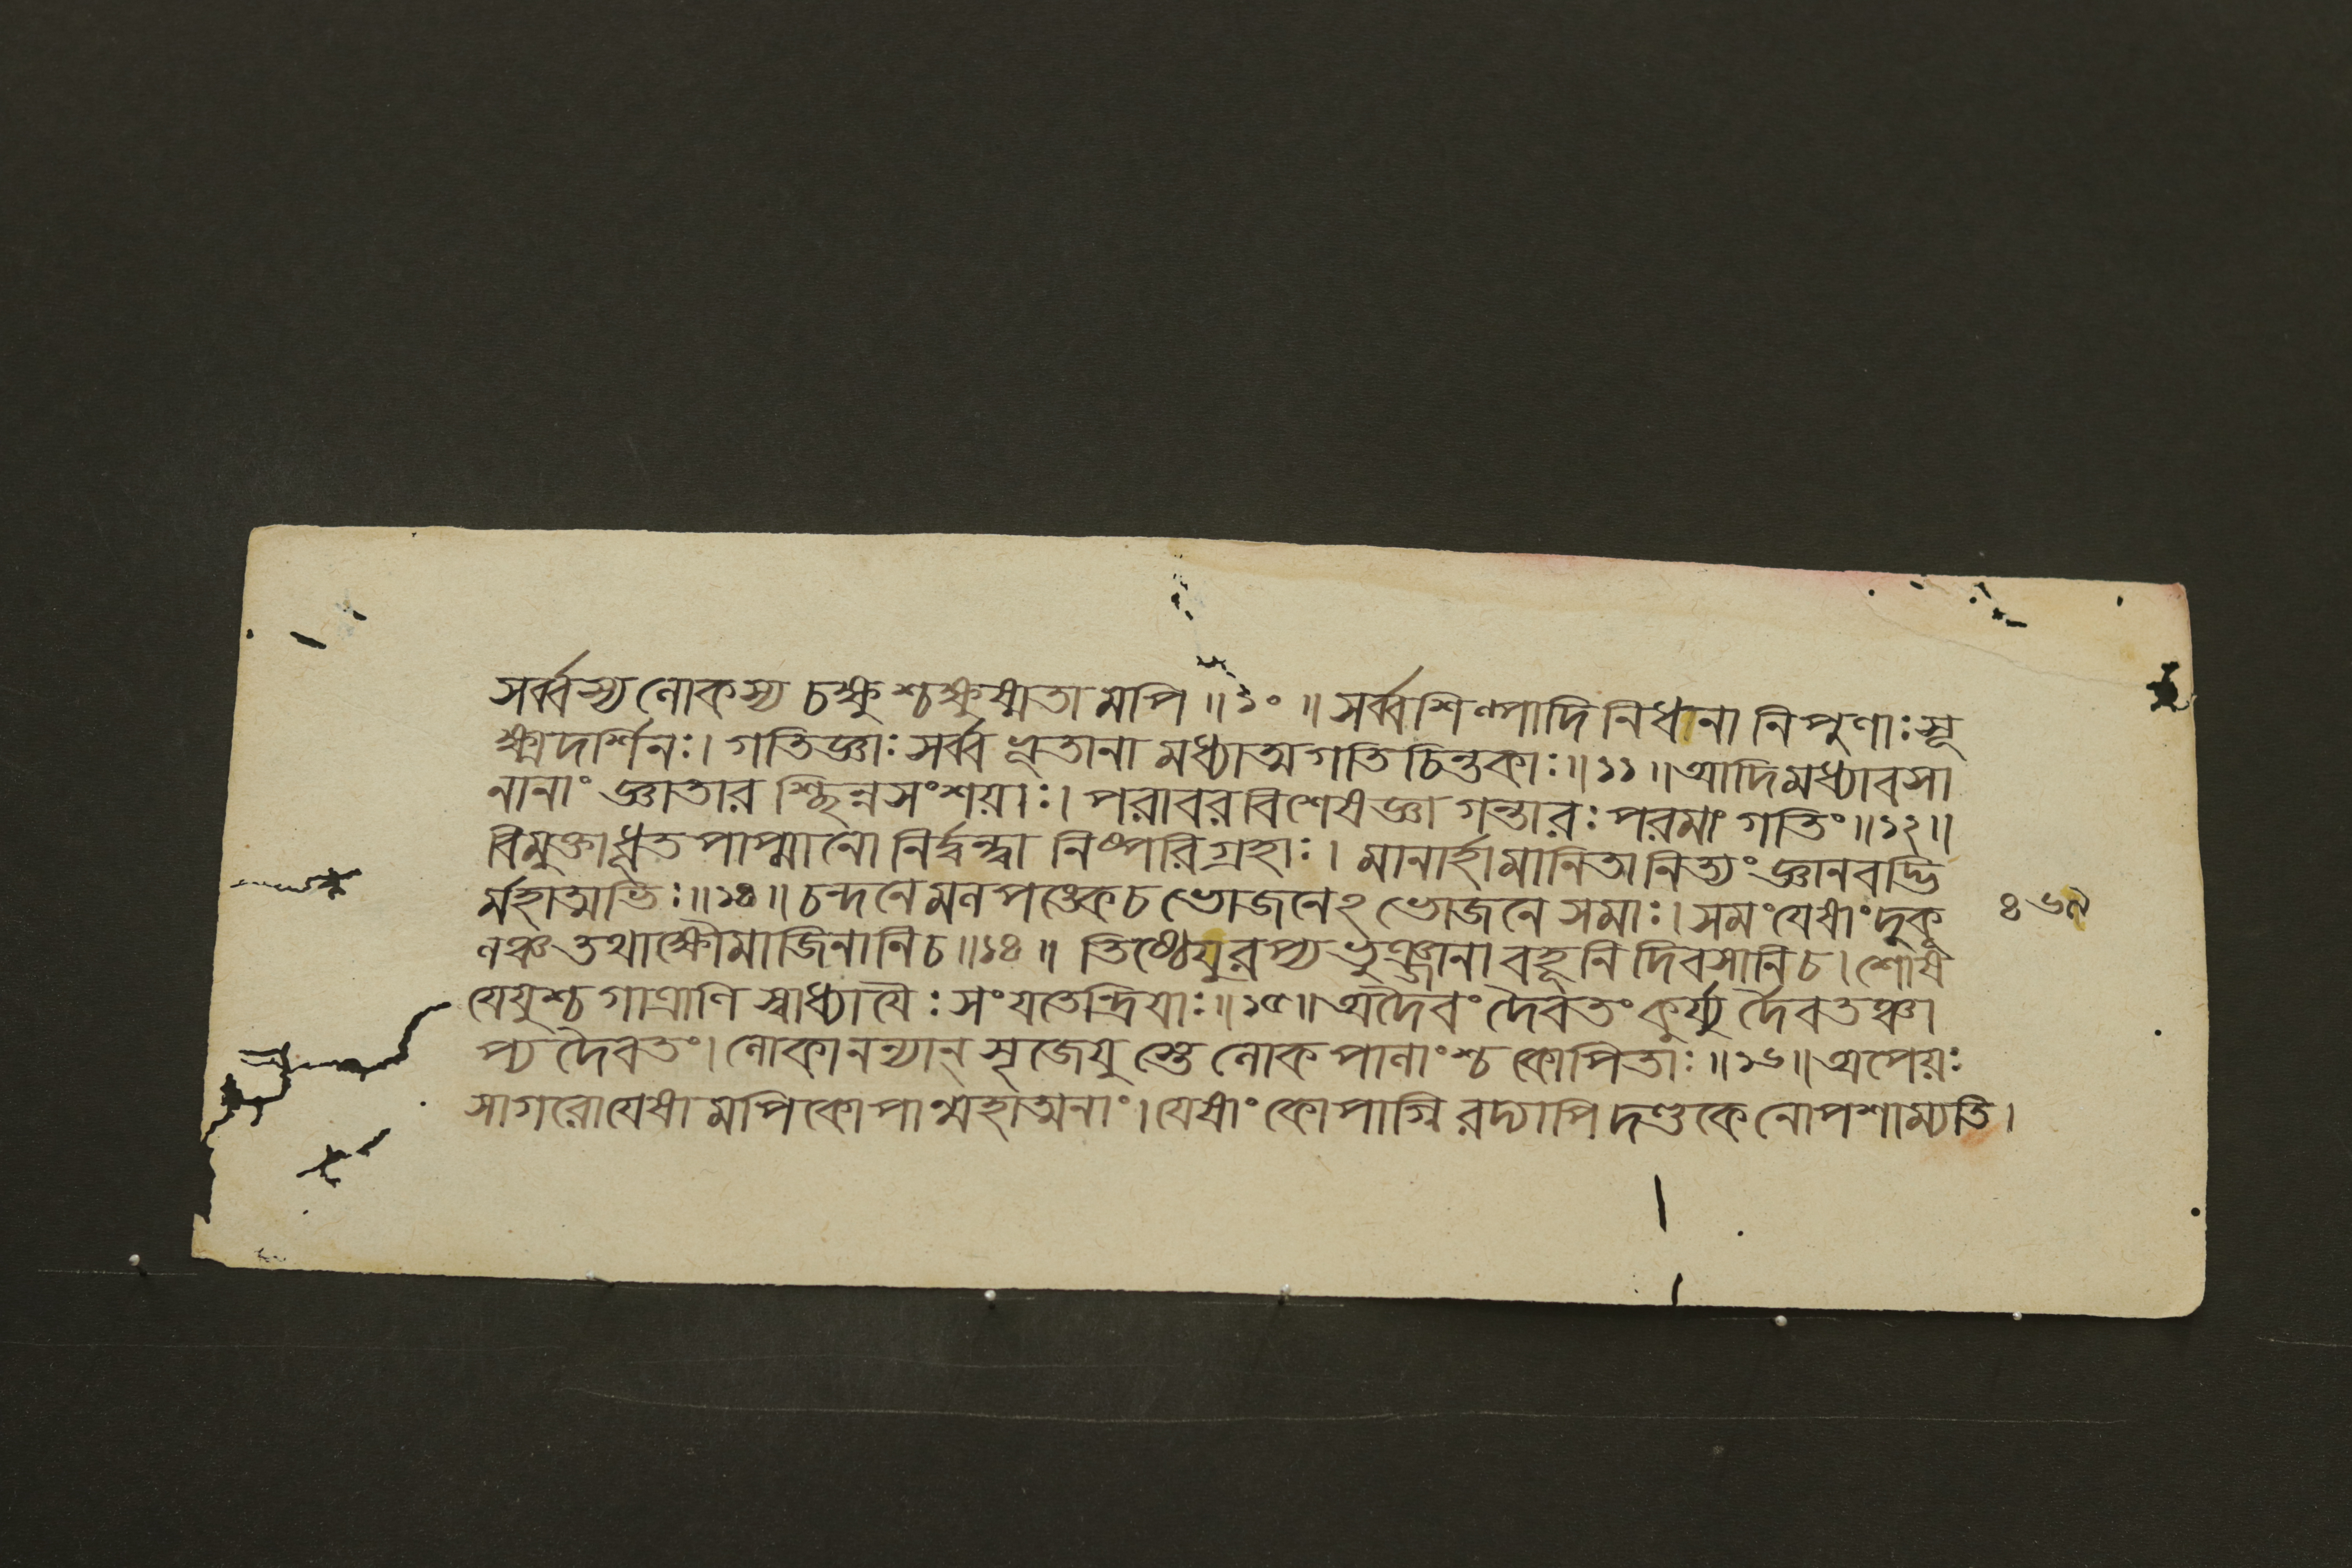 সর্ব্বস্য লোকস্য চক্ষুশ্চক্ষুষ্মতামপি ॥১০ ॥ সর্ব্বশিল্পাদি নিধানা নিপুণাঃ সূ
ক্ষ্মদর্শিনঃ। গতিজ্ঞাঃ সর্ব্বভূতানামধ্যাত্মগতিচিন্তকাঃ॥১১॥আদিমধ্যাবসা
নানাং জ্ঞাতারশ্ছিন্নসংশয়াঃ। পরাবরবিশেষজ্ঞা গন্তারঃ পরমাং গতিং॥১২॥
বিমুক্তা ধূতপাপ্মানো নির্দ্বন্দ্বা নিষ্পরিগ্রহাঃ। মানার্হামানিতা নিত্যং জ্ঞানবদ্ভি
র্মহাত্মভিঃ॥১৩॥ চন্দনে মলপঙ্কে চ ভোজনেঽভোজনে সমাঃ। সমং যেষাং দুকূ
লঞ্চ তথা ক্ষৌমাজিনানি চ॥১৪॥ তিষ্ঠেয়ুরপ্যভুঞ্জানা বহূনি দিবসানি চ। শোষ
যেয়ুশ্চ গাত্রাণি স্বাধ্যাযৈঃ সংযতেন্দ্রিযাঃ॥১৫॥ অদৈবং দৈবতং কুর্য্যুর্দৈবতঞ্চা
প্য দৈবতং। লোকানন্যান্ সৃজেয়ুস্তে লোকপালাংশ্চ কোপিতাঃ॥১৬॥ অপেয়ঃ
সাগরো যেষামপি কোপান্মহাত্মনাং। যেষাং কোপাগ্নিরদ্যাপি দণ্ডকে নোপশাম্যতি।
৪৬৭